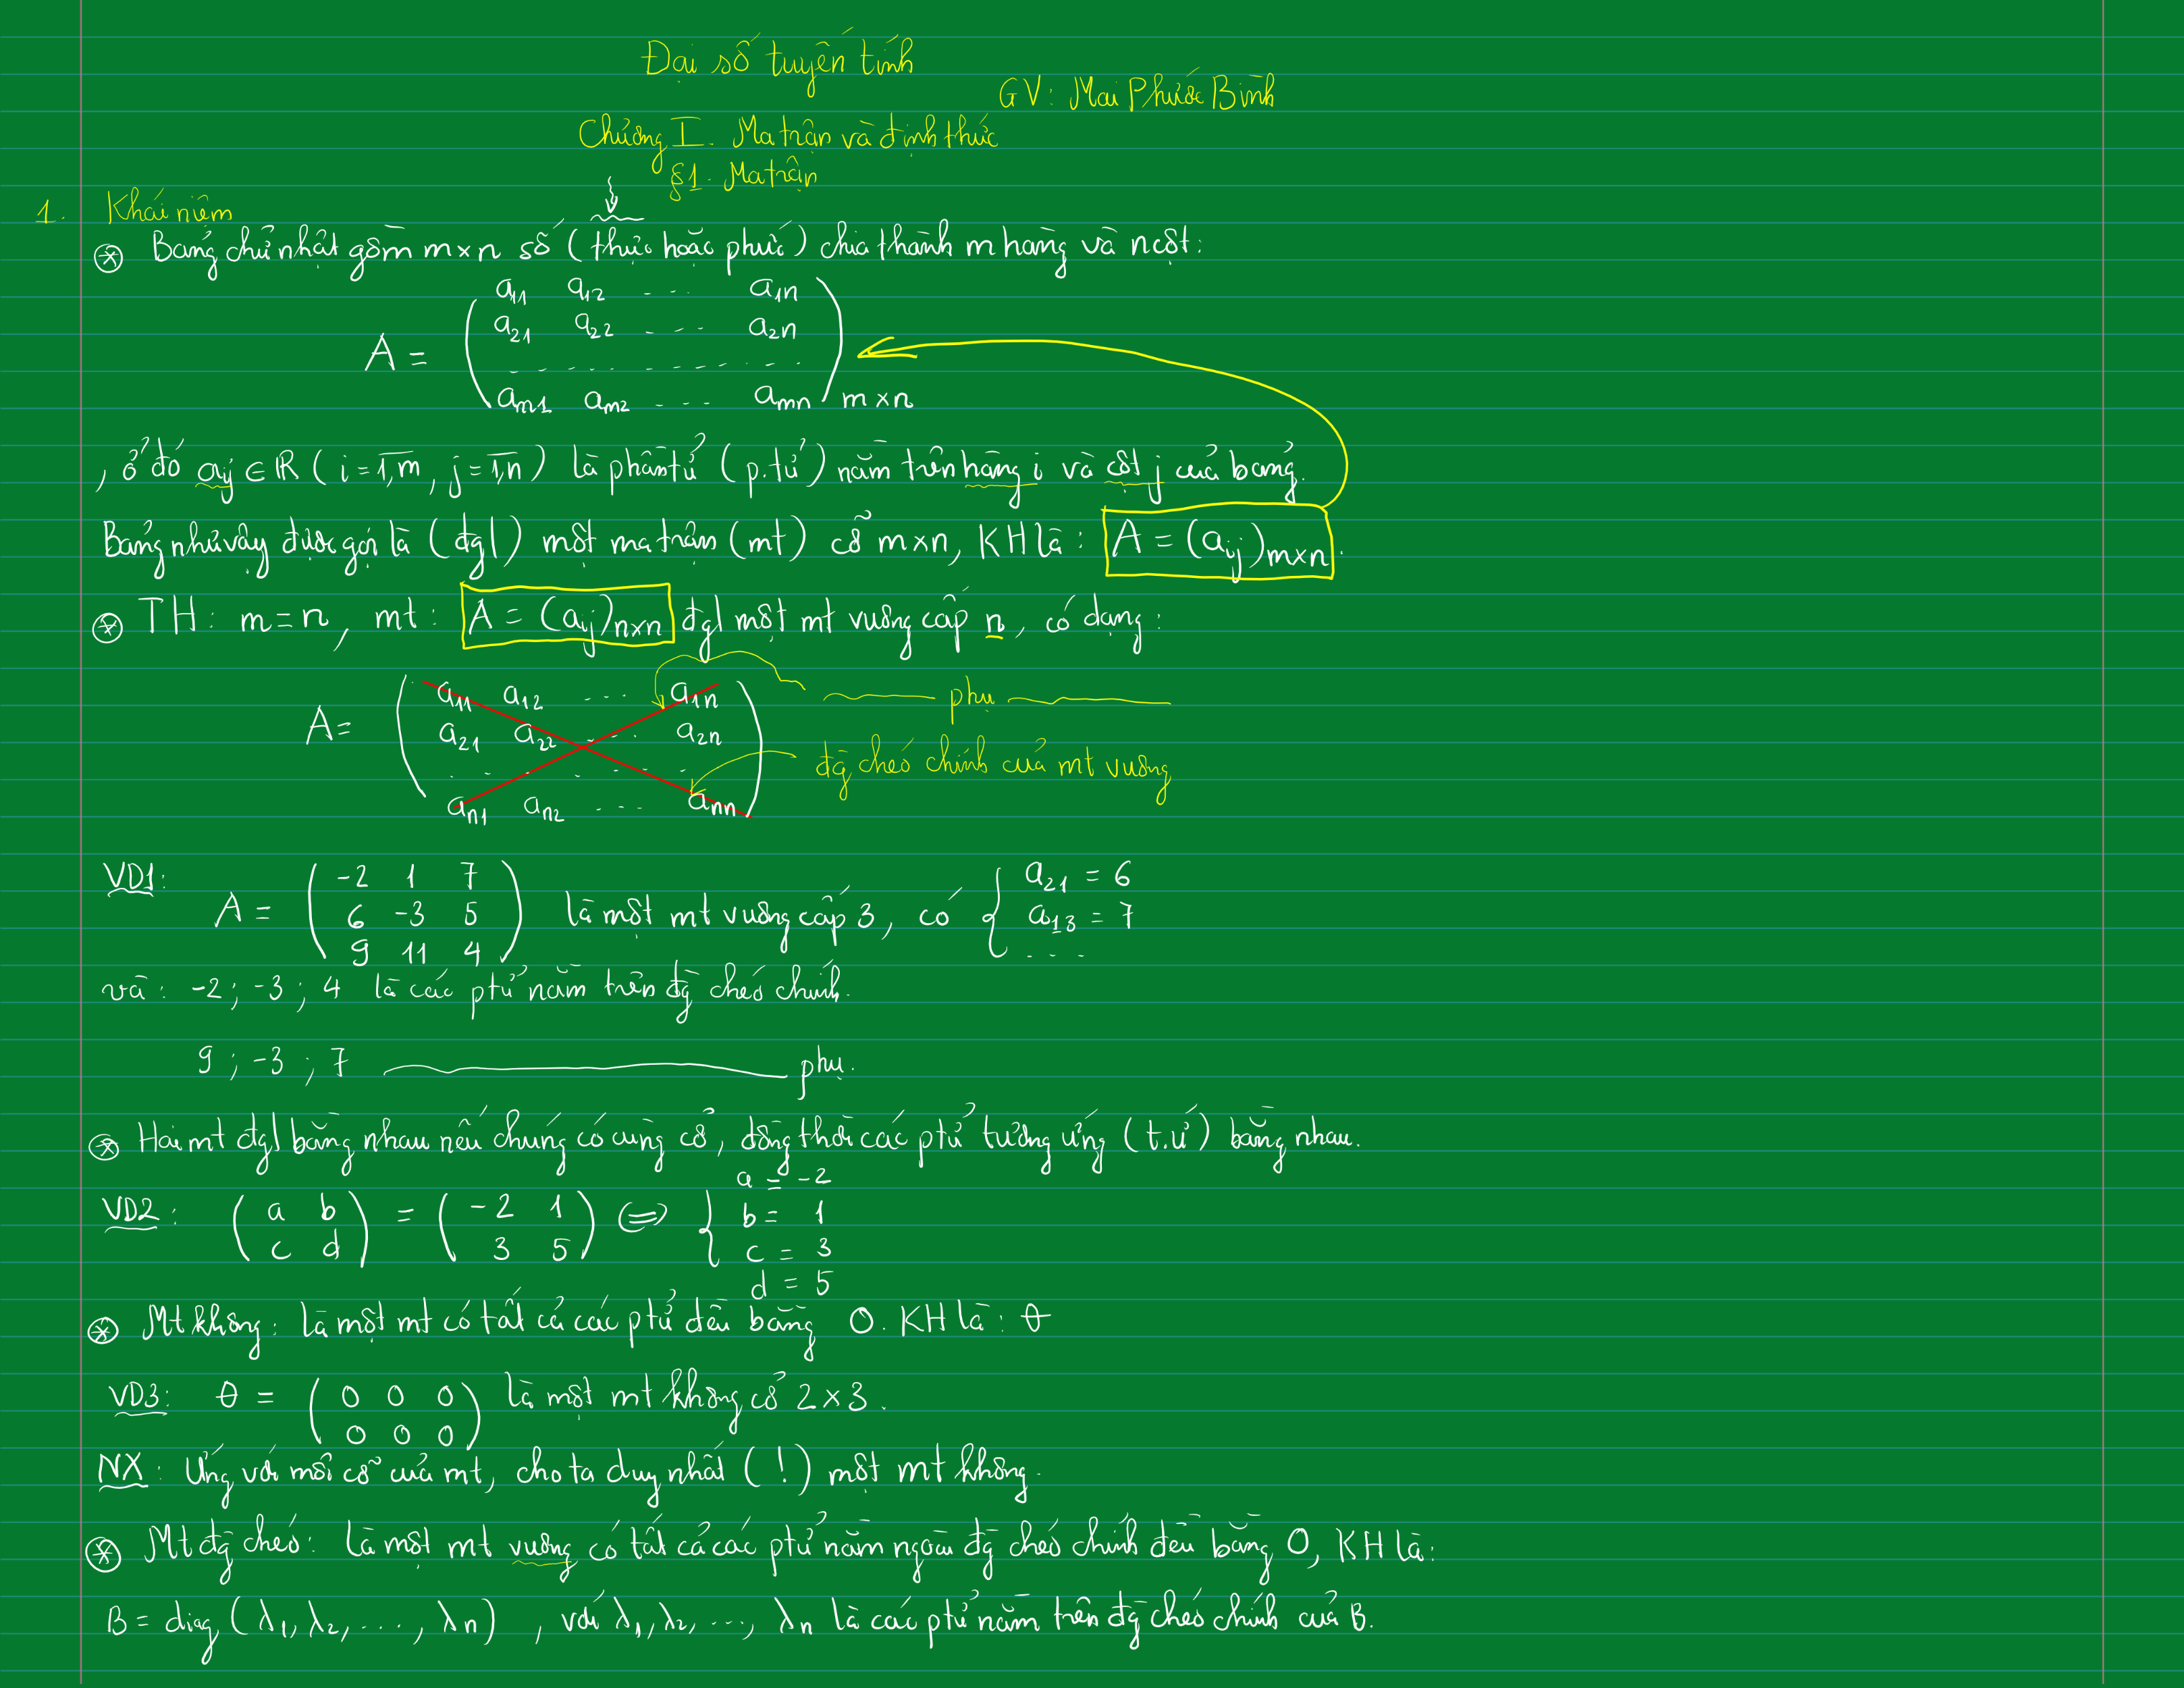 Đại số tuyến tính
GV: Mai Phước Bình
Chương I. Ma trận và định thức
§1. Ma trận
1. Khái niệm
⊛ Bảng chữ nhật gồm m×n số (thực hoặc phức) chia thành m hàng và n cột:
a₁₁ a₁₂ ... a₁n
a₂₁ a₂₂ ... a₂n
A = ( . . . . . . . . . )
am1 am2 ... amn m×n
, ở đó aij ∈ ℝ (i = 1,m, j = 1,n) là phần tử (p.tử) nằm trên hàng i và cột j của bảng.
Bảng như vậy được gọi là (đgl) một ma trận (mt) cỡ m×n, KH là: A = (aij)m×n.
⊛ TH: m = n, mt: A = (aij)n×n đgl một mt vuông cấp n, có dạng:
a₁₁ a₁₂ ... a₁n phụ
A = a₂₁ a₂₂ ... a₂n
. . . . . . . đg chéo chính của mt vuông
an1 an2 ... ann
VD1: -2 1 7 a₂₁ = 6
A = ( 6 -3 5 ) là một mt vuông cấp 3, có { a₁₃ = 7
9 11 4 ...
và: -2; -3; 4 là các ptử nằm trên đg chéo chính.
9; -3; 7 phụ.
⊛ Hai mt đgl bằng nhau nếu chúng có cùng cỡ, đồng thời các ptử tương ứng (t.ư) bằng nhau.
a = -2
VD2: ( a b ) = ( -2 1 ) ⟺ { b = 1
c d 3 5 c = 3
d = 5
⊛ Mt không: là một mt có tất cả các ptử đều bằng 0. KH là: θ
VD3: θ = ( 0 0 0 ) là một mt không cỡ 2×3.
0 0 0
NX: Ứng với mỗi cỡ của mt, cho ta duy nhất (!) một mt không.
⊛ Mt đg chéo: là một mt vuông có tất cả các ptử nằm ngoài đg chéo chính đều bằng 0, KH là:
B = diag (λ₁, λ₂, ..., λn) , với λ₁, λ₂, ..., λn là các ptử nằm trên đg chéo chính của B.